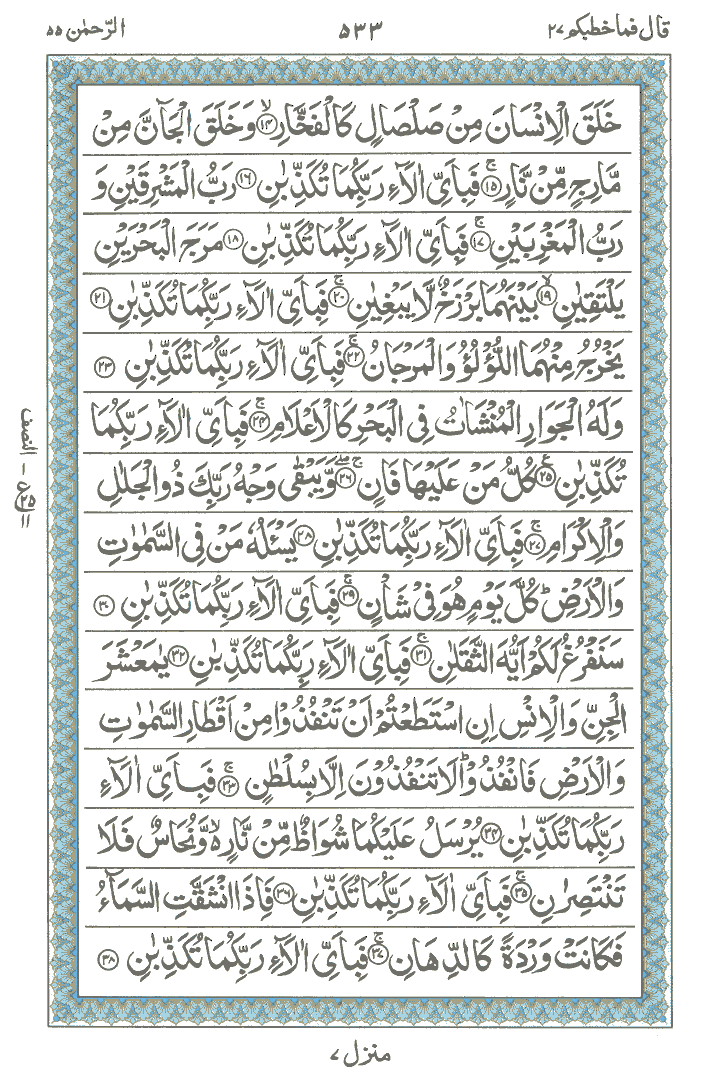 قال فما خطبكم ۲۷
۵۳۳
الرّحمٰن ۵۵
خَلَقَ الْاِنْسَانَ مِنْ صَلْصَالٍ كَالْفَخَّارِ ۙ﴿۱۴﴾ وَخَلَقَ الْجَآنَّ مِنْ
مَّارِجٍ مِّنْ نَّارٍ ۚ﴿۱۵﴾ فَبِاَیِّ اٰلَآءِ رَبِّكُمَا تُكَذِّبٰنِ ﴿۱۶﴾ رَبُّ الْمَشْرِقَيْنِ وَ
رَبُّ الْمَغْرِبَيْنِ ۚ﴿۱۷﴾ فَبِاَیِّ اٰلَآءِ رَبِّكُمَا تُكَذِّبٰنِ ﴿۱۸﴾ مَرَجَ الْبَحْرَيْنِ
يَلْتَقِيٰنِ ۙ﴿۱۹﴾ بَيْنَهُمَا بَرْزَخٌ لَّا يَبْغِيٰنِ ۚ﴿۲۰﴾ فَبِاَیِّ اٰلَآءِ رَبِّكُمَا تُكَذِّبٰنِ ﴿۲۱﴾
يَخْرُجُ مِنْهُمَا اللُّؤْلُؤُ وَالْمَرْجَانُ ۚ﴿۲۲﴾ فَبِاَیِّ اٰلَآءِ رَبِّكُمَا تُكَذِّبٰنِ ﴿۲۳﴾
وَلَهُ الْجَوَارِ الْمُنْشَاٰتُ فِی الْبَحْرِ كَالْاَعْلَامِ ۚ﴿۲۴﴾ فَبِاَیِّ اٰلَآءِ رَبِّكُمَا
تُكَذِّبٰنِ ﴿۲۵﴾ۧ كُلُّ مَنْ عَلَيْهَا فَانٍ ۚۖ﴿۲۶﴾ وَّيَبْقٰی وَجْهُ رَبِّكَ ذُو الْجَلٰلِ
وَالْاِكْرَامِ ۚ﴿۲۷﴾ فَبِاَیِّ اٰلَآءِ رَبِّكُمَا تُكَذِّبٰنِ ﴿۲۸﴾ يَسْـَٔلُهٗ مَنْ فِی السَّمٰوٰتِ
وَالْاَرْضِ ؕ كُلَّ يَوْمٍ هُوَ فِیْ شَاْنٍ ۚ﴿۲۹﴾ فَبِاَیِّ اٰلَآءِ رَبِّكُمَا تُكَذِّبٰنِ ﴿۳۰﴾
سَنَفْرُغُ لَكُمْ اَيُّهَ الثَّقَلٰنِ ۚ﴿۳۱﴾ فَبِاَیِّ اٰلَآءِ رَبِّكُمَا تُكَذِّبٰنِ ﴿۳۲﴾ يٰمَعْشَرَ
الْجِنِّ وَالْاِنْسِ اِنِ اسْتَطَعْتُمْ اَنْ تَنْفُذُوْا مِنْ اَقْطَارِ السَّمٰوٰتِ
وَالْاَرْضِ فَانْفُذُوْا ؕ لَا تَنْفُذُوْنَ اِلَّا بِسُلْطٰنٍ ۚ﴿۳۳﴾ فَبِاَیِّ اٰلَآءِ
رَبِّكُمَا تُكَذِّبٰنِ ﴿۳۴﴾ يُرْسَلُ عَلَيْكُمَا شُوَاظٌ مِّنْ نَّارٍ ۙ۬ وَّنُحَاسٌ فَلَا
تَنْتَصِرٰنِ ۚ﴿۳۵﴾ فَبِاَیِّ اٰلَآءِ رَبِّكُمَا تُكَذِّبٰنِ ﴿۳۶﴾ فَاِذَا انْشَقَّتِ السَّمَآءُ
فَكَانَتْ وَرْدَةً كَالدِّهَانِ ۚ﴿۳۷﴾ فَبِاَیِّ اٰلَآءِ رَبِّكُمَا تُكَذِّبٰنِ ﴿۳۸﴾
النصف
منزل ۷